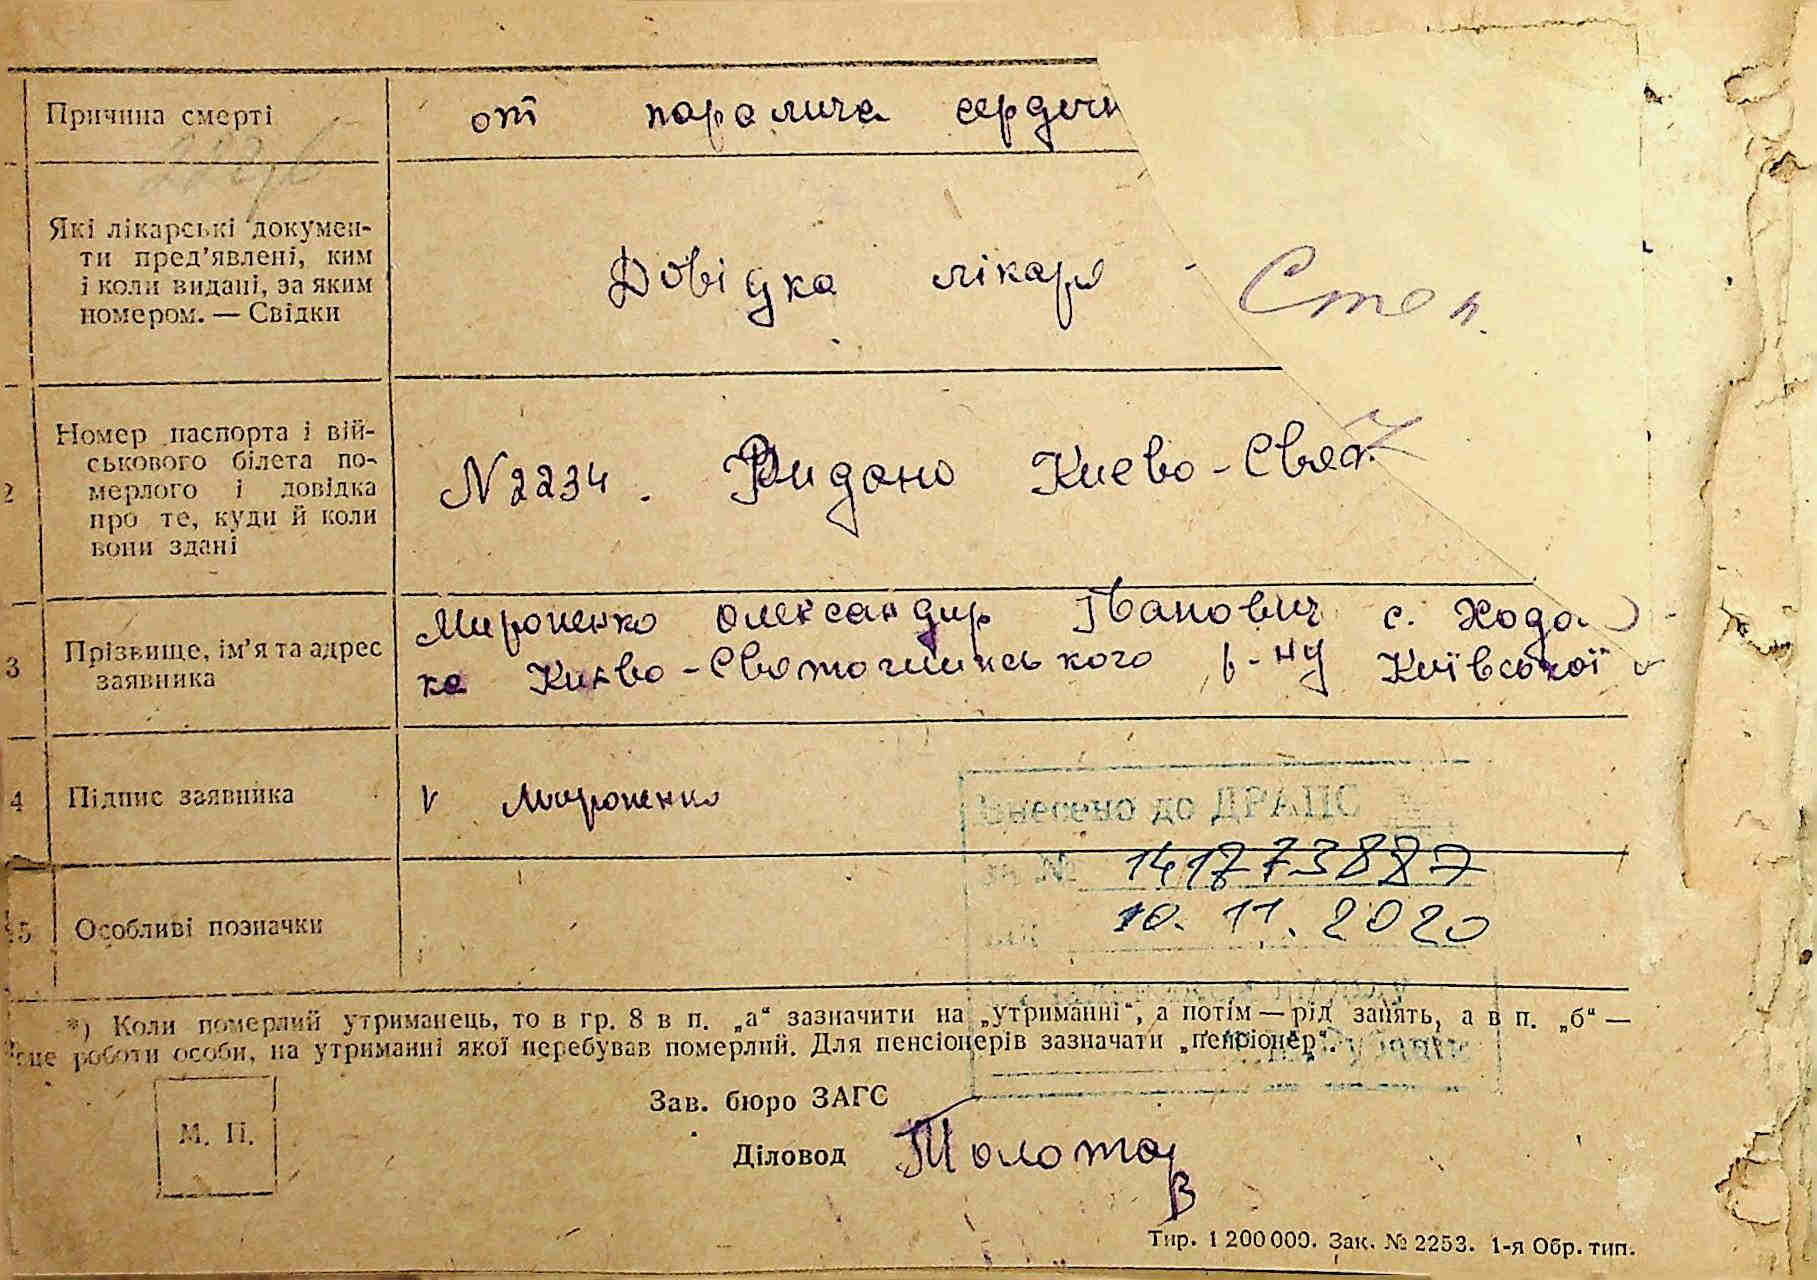 Причина смерті
от паралича сердечн
Які лікарські докумен-
ти пред'явлені, ким
і коли видані, за яким
номером. — Свідки
Довідка лікаря - Степ.
2
Номер паспорта і вій-
ськового білета по-
мерлого і довідка
про те, куди й коли
вони здані
N2234. Видано Києво-Свят.
3
Прізвище, ім'я та адрес
заявника
Мироненко Олександр Іванович с. Хода
ка Києво-Святошинського р-ну Київської
4
Підпис заявника
V Мироненко
Внесено до ДРАЦС
за № 141773887
10. 11. 2020
5
Особливі позначки
*) Коли померлий утриманець, то в гр. 8 в п. „а“ зазначити на „утриманні“, а потім — рід занять, а в п. „б“ —
роботи особи, на утриманні якої перебував померлий. Для пенсіонерів зазначати „пенсіонер“.
Зав. бюро ЗАГС
М. П.
Діловод
Тир. 1 200 000. Зак. № 2253. 1-я Обр. тип.